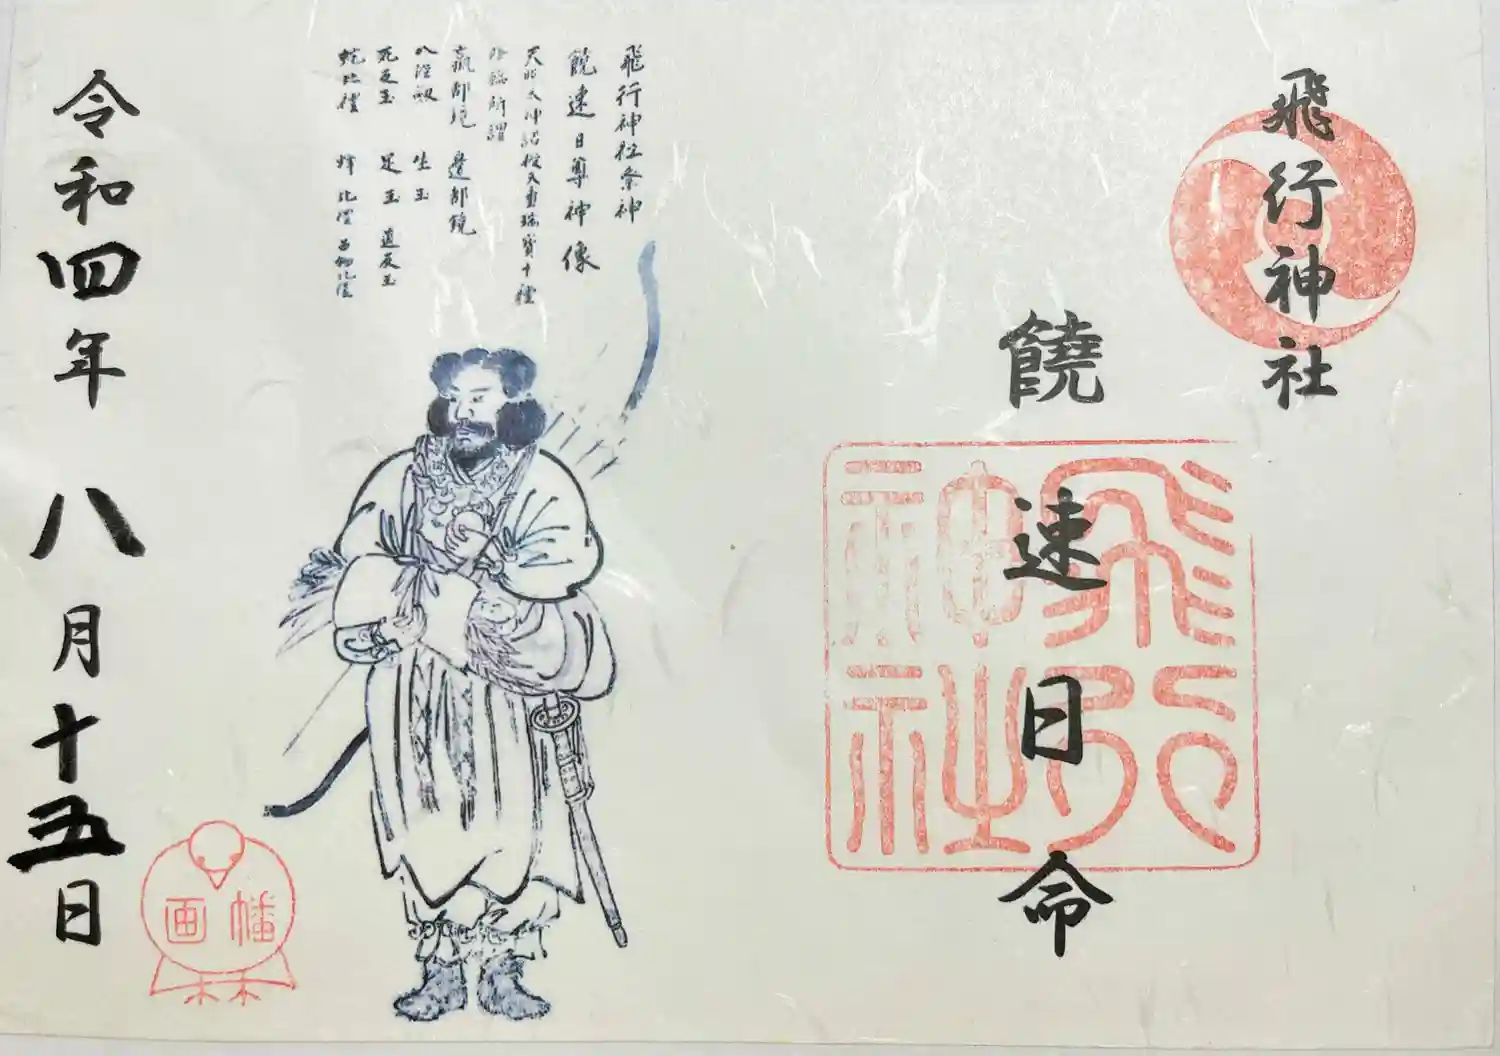 飛行神社
饒速日命
飛行神社
飛行神社祭神
饒速日尊神像
天照太神詔授天璽瑞寳十種
降臨所謂
瀛都鏡 邊都鏡
八握劔 生玉
死反玉 足玉 道反玉
蛇比禮 蜂比禮 品物比禮
令和四年 八月十五日
幡
画